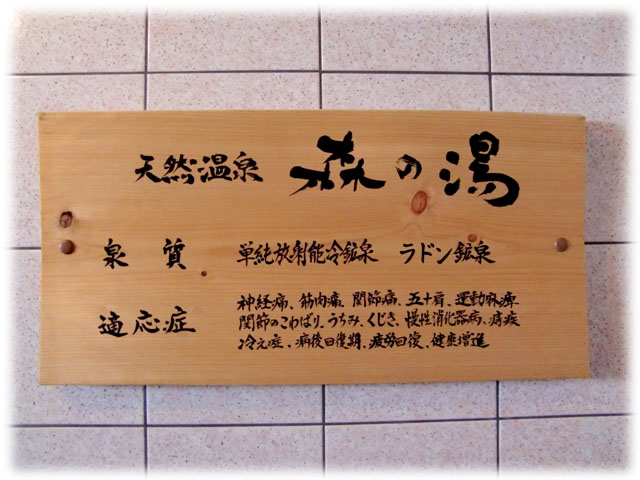 天然温泉 森の湯
泉質 単純放射能冷鉱泉 ラドン鉱泉
適応症 神経痛、筋肉痛、関節痛、五十肩、運動麻痺
関節のこわばり、うちみ、くじき、慢性消化器病、痔疾
冷え症、病後回復期、疲労回復、健康増進